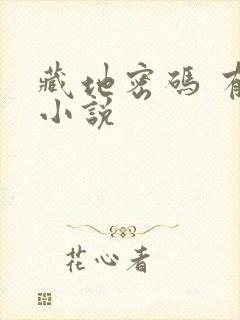 藏地密碼 有
小說
花心者